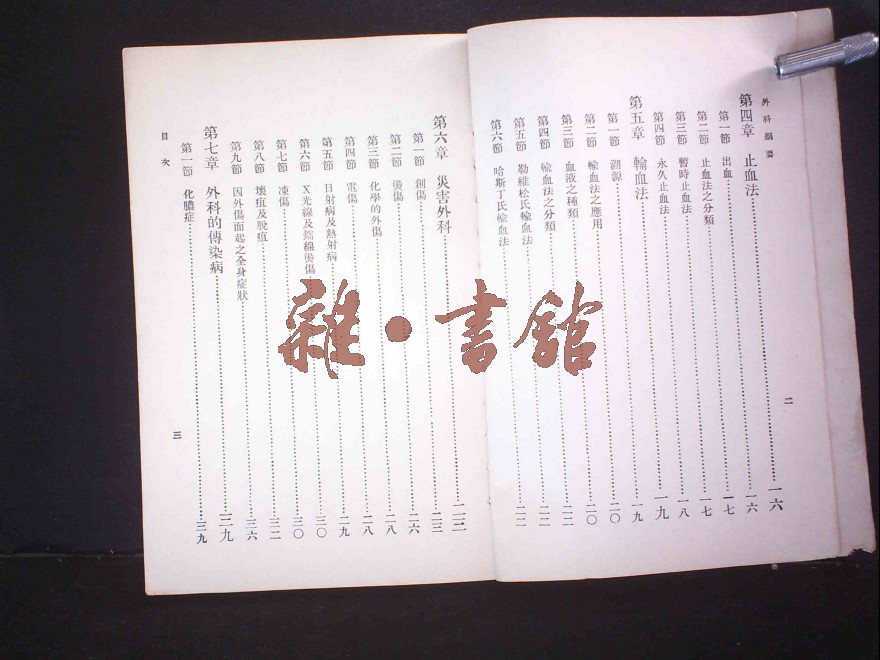 外科綱要
第四章 止血法……一六
第一節 出血……一六
第二節 止血法之分類……一七
第三節 暫時止血法……一七
第四節 永久止血法……一八
第五章 輸血法……一九
第一節 溯源……一九
第二節 輸血法之應用……二〇
第三節 血液之種類……二〇
第四節 輸血法之分類……二二
第五節 勒維松氏輸血法……二二
第六節 哈斯丁氏輸血法……二二
二
第六章 災害外科……二二
第一節 創傷……二三
第二節 燙傷……二六
第三節 化學的外傷……二八
第四節 電傷……二八
第五節 日射病及熱射病……二九
第六節 X光線及鐳線燙傷……三〇
第七節 凍傷……三〇
第八節 壞疽及脫疽……三二
第九節 因外傷而起之全身症狀……三六
第七章 外科的傳染病……三九
第一節 化膿症……三九
目次
三
雜·書館